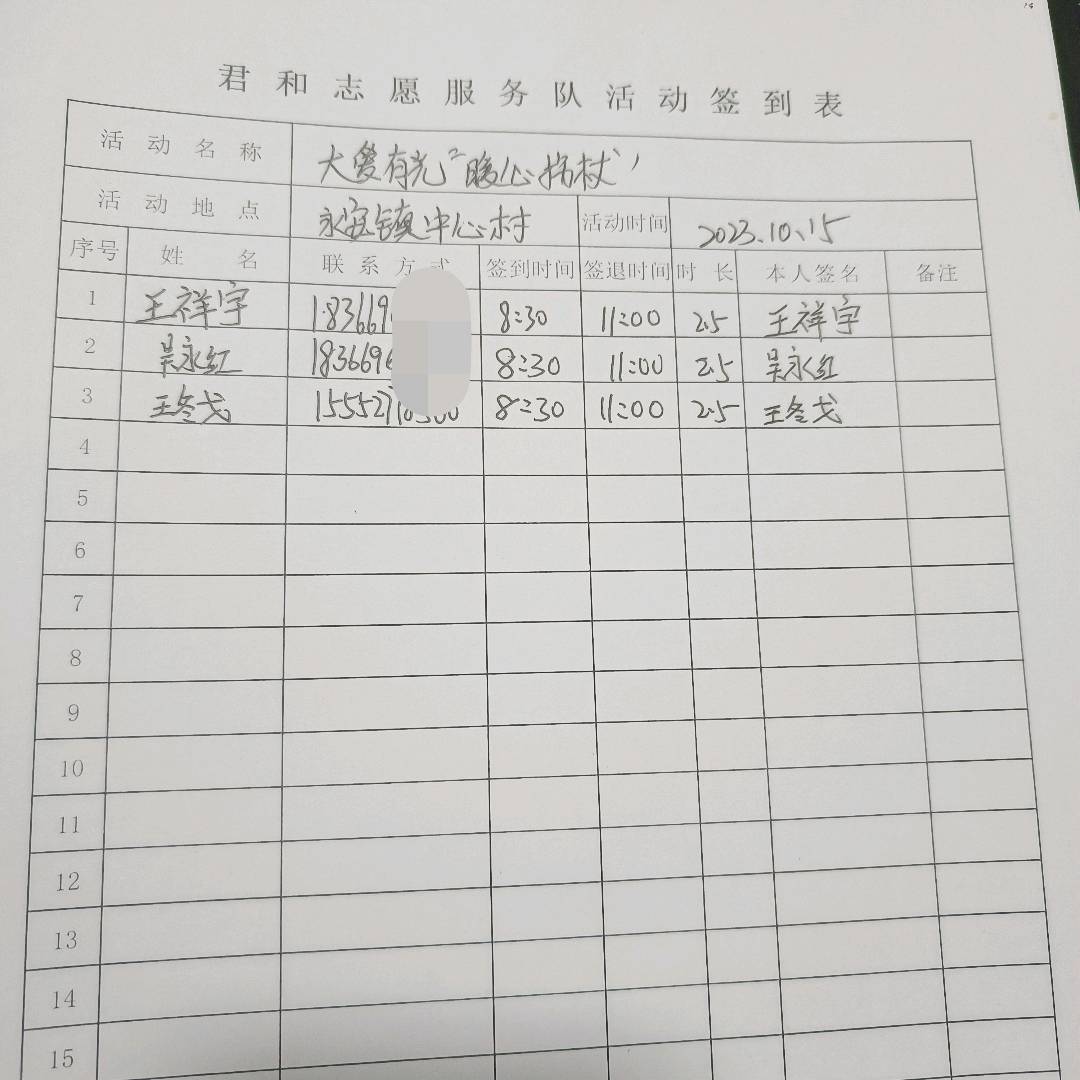 君和志愿服务队活动签到表
活动名称 大爱有光"暖心拐杖"
活动地点 永安镇中心村 活动时间 2023.10.15
序号 姓名 联系方式 签到时间 签退时间 时长 本人签名 备注
1 王祥宇 183669 8:30 11:00 2.5 王祥宇
2 吴永红 183669 8:30 11:00 2.5 吴永红
3 王冬戈 155527 8:30 11:00 2.5 王冬戈
4
5
6
7
8
9
10
11
12
13
14
15